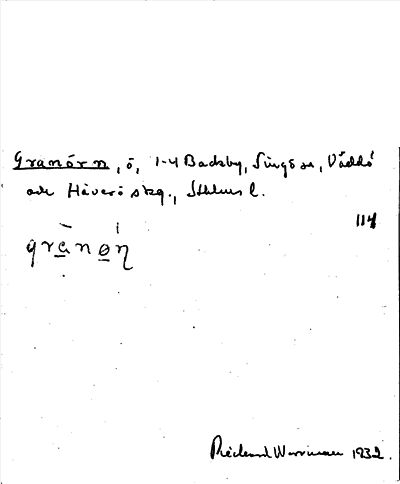 Granörn, ö, 1-4 Backby, Singö sn, Väddö
och Häverö skg., Sthlms l.
114
grànön
Richard Wessman 1932.